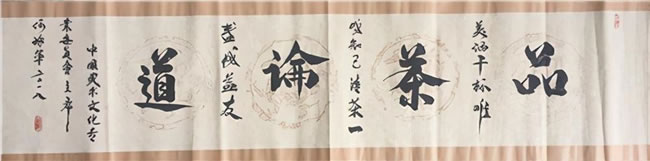 品
美酒千杯难
茶
成知己清茶一
論
盏成益友
道
中国
文化专
业委员会主席
二〇一八